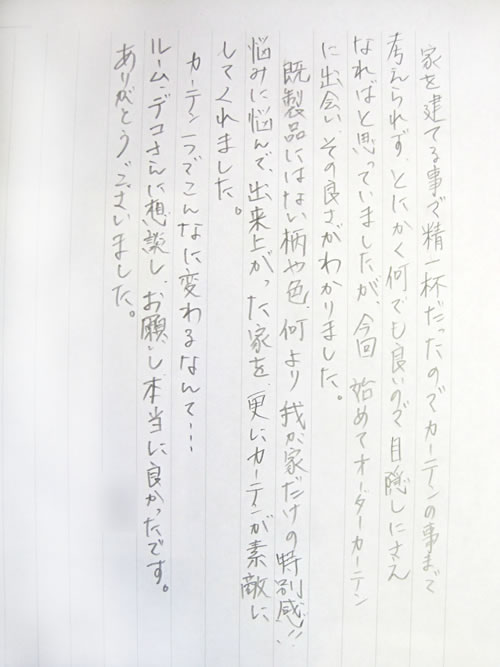 家を建てる事で精一杯だったのでカーテンの事まで
考えられず、とにかく何でも良いので目隠しにさえ
なればと思っていましたが、今回 始めてオーダーカーテン
に出会い、その良さがわかりました。
既製品にはない柄や色、何より 我が家だけの特別感!!
悩みに悩んで、出来上がった家を、更にカーテンが素敵に
してくれました。
カーテン一つでこんなに変わるなんて…
ルーム・デコさんに想談し、お願いし 本当に良かったです。
ありがとうございました。